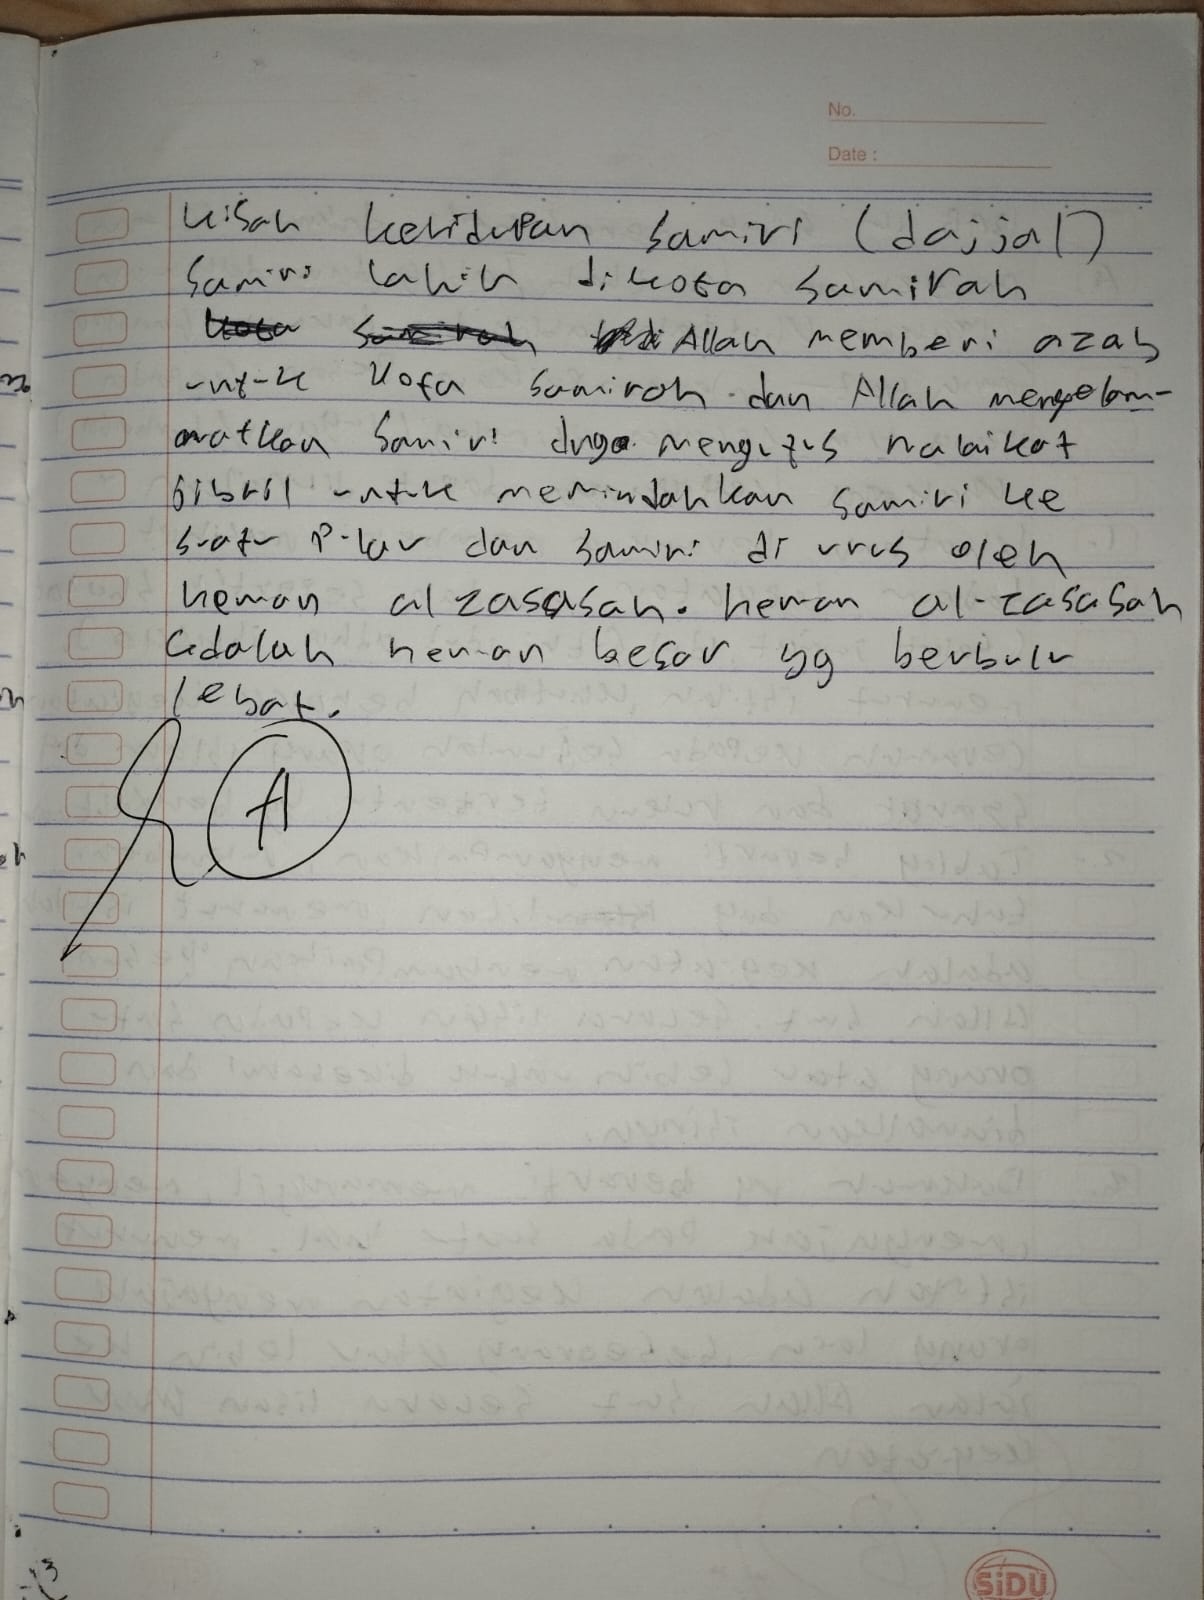 No.
Date :
Kisah kehidupan Samiri (dajjal)
Samiri lahir di kota samirah
Allah memberi azab
untuk kota Samiroh dan Allah menyelam-
matkan Samiri dngn mengutus malaikat
jibril untuk memindahkan Samiri ke
suatu Pulau dan Samiri di urus oleh
hewan al zasasah. hewan al-zasasah
adalah hewan besar yg berbulu
lebat.
A
SiDU